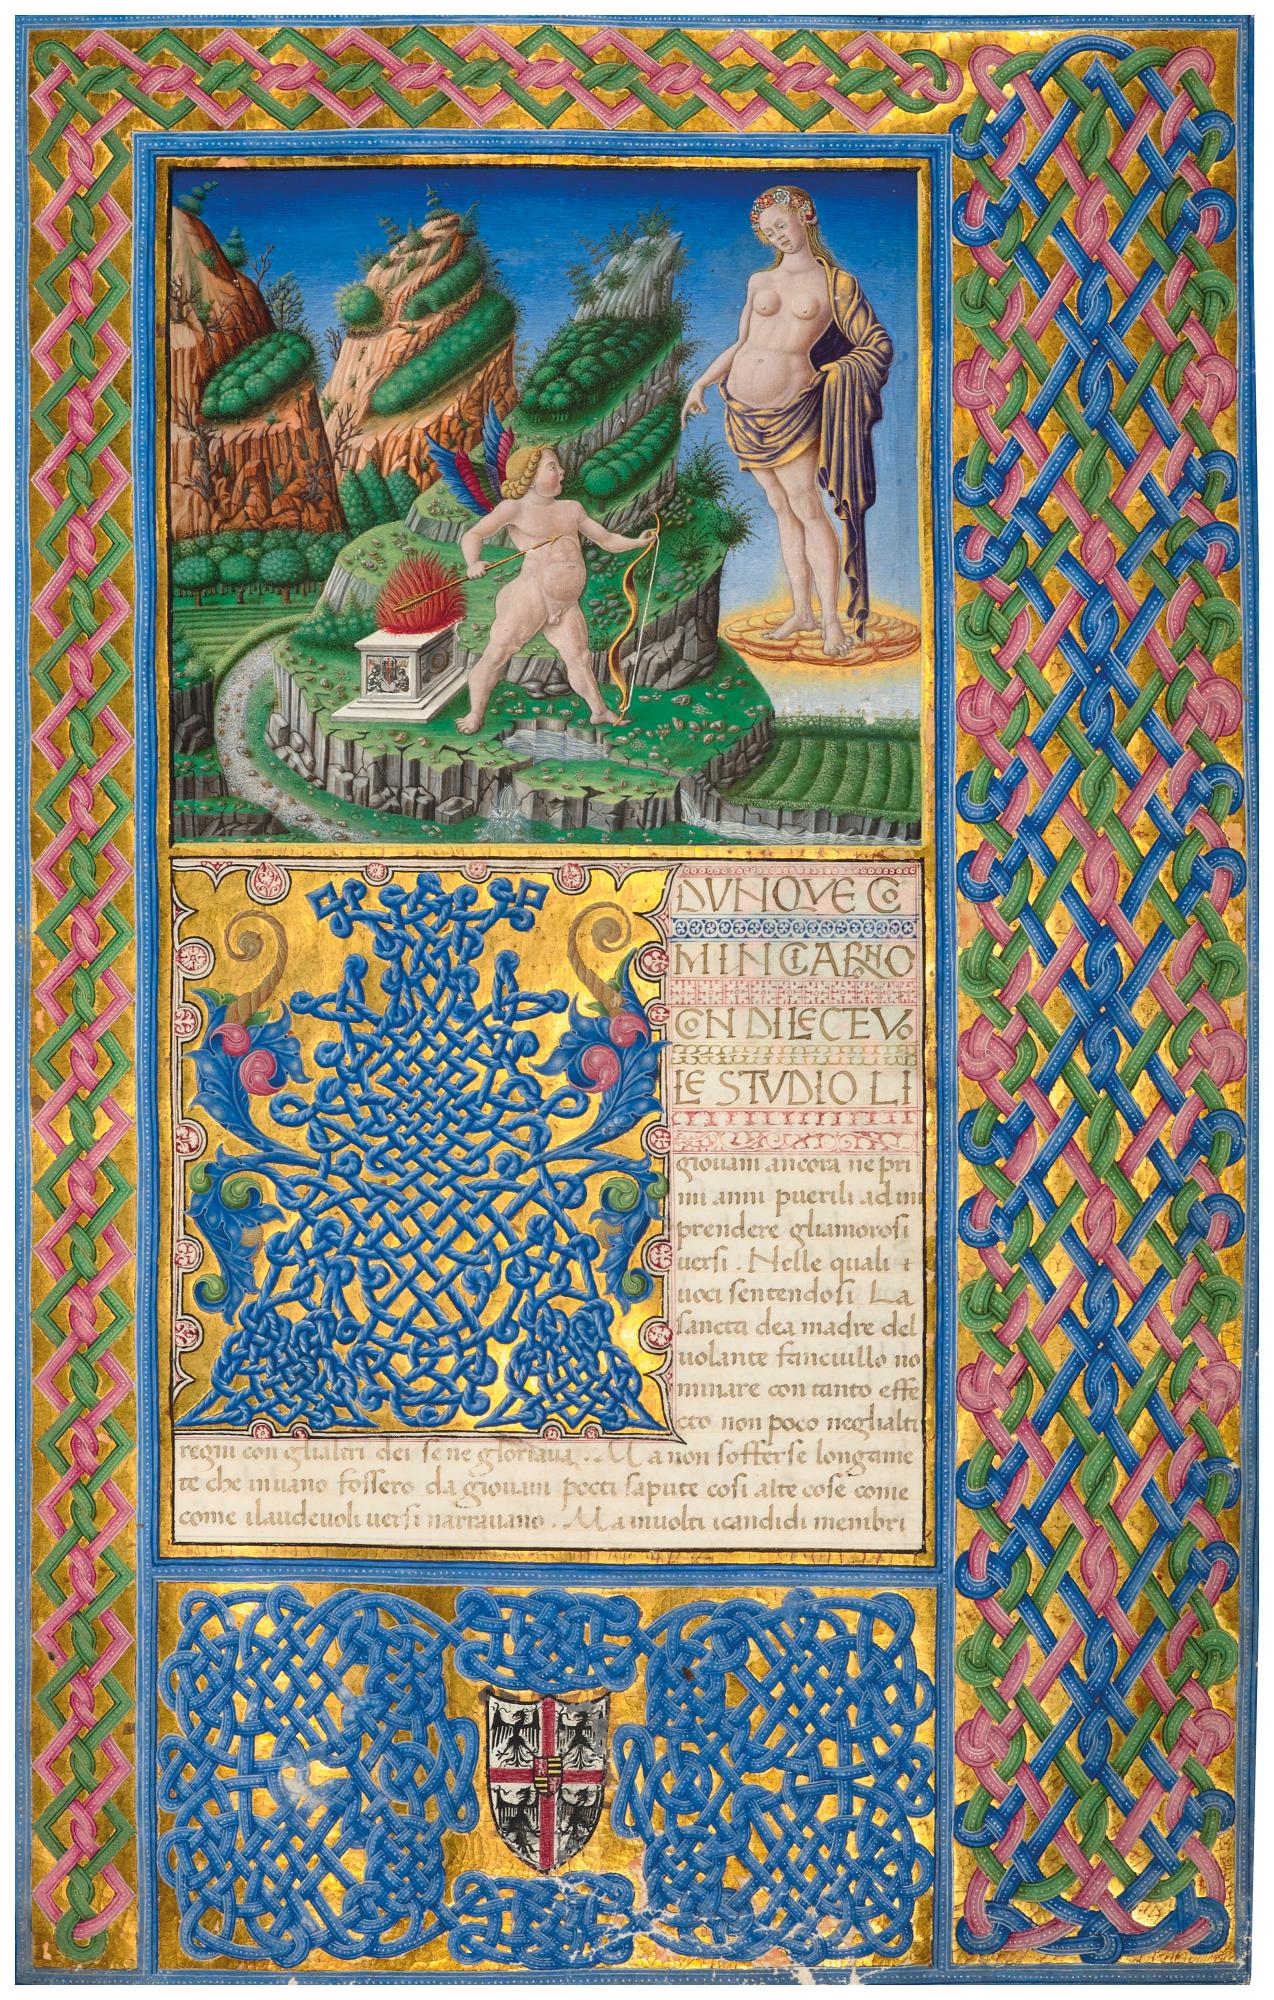 A
DVNQVE CO
MINCIARNO
CON DILECTEVO
LE STVDIO LI
giouani ancora ne pri
mi anni puerili ad im
prendere gliamorosi
uersi . Nelle quali
uoci sentendosi La
sancta dea madre del
uolante fanciullo no
minare con tanto effe
cto non poco neglialti
regni con glialtri dei se ne gloriaua . Ma non sofferse longame
te che inuano fossero da giouani poeti sapute cosi alte cose come
come ilaudeuoli uersi narrauano . Ma inuolti icandidi membri